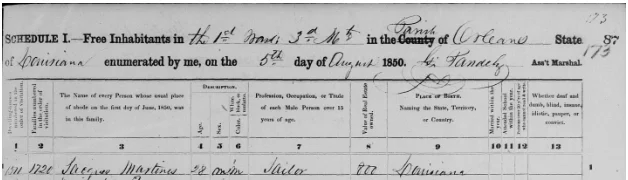 173
SCHEDULE I.—Free Inhabitants in the 1st Ward 3d Mt in the County Parish of Orleans State 87
of Louisiana enumerated by me, on the 5th day of August 1850. Ass't Marshal. 173
Dwelling-houses numbered in the order of visitation.
Families numbered in the order of visitation.
The Name of every Person whose usual place of abode on the first day of June, 1850, was in this family.
DESCRIPTION.
Age.
Sex.
Color.
Profession, Occupation, or Trade of each Male Person over 15 years of age.
Value of Real Estate owned.
PLACE OF BIRTH. Naming the State, Territory, or Country.
Married within the year.
Attended School within the year.
Whether deaf and dumb, blind, insane, idiotic, pauper, or convict.
1 2 3 4 5 6 7 8 9 10 11 12 13
1720 Jacques Martinez 28 m m Tailor 800 Louisiana 1